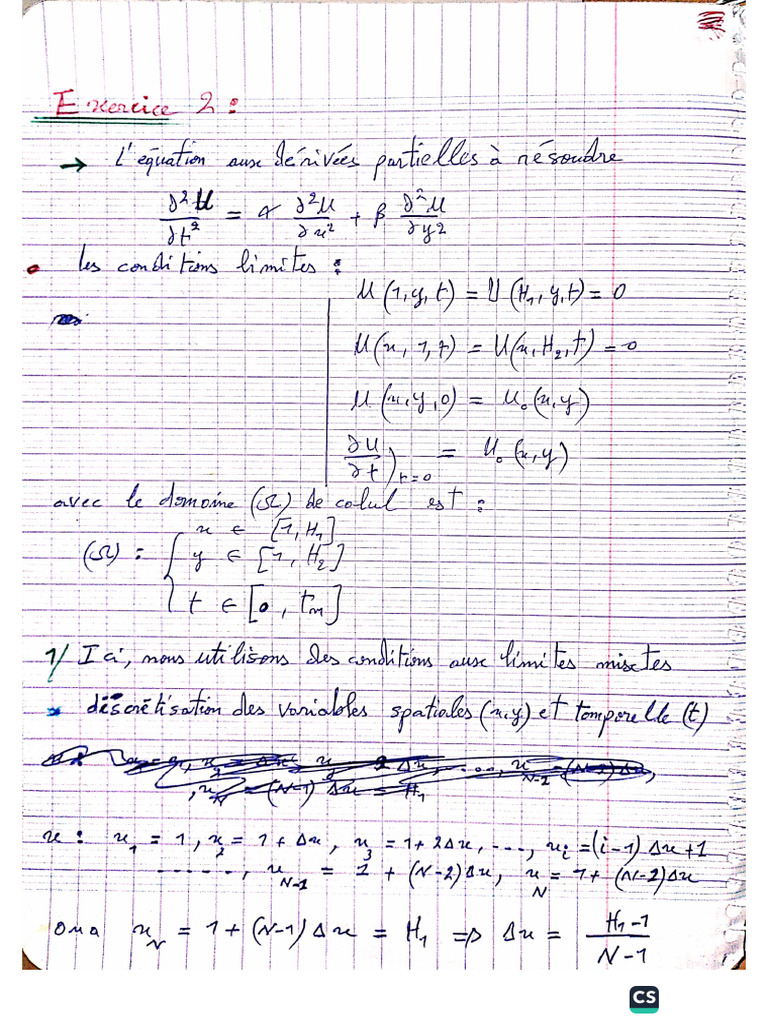 Exercice 2 :
→ L'équation aux dérivées partielles à résoudre
∂²U/∂t² = α ∂²U/∂x² + β ∂²U/∂y²
• les conditions limites :
U(1,y,t) = U(H₁,y,t) = 0
U(x,1,t) = U(x,H₂,t) = 0
U(x,y,0) = U₀(x,y)
∂U/∂t)t=0 = U₀(x,y)
avec le domaine (Ω) de calul est :
x ∈ [1, H₁]
(Ω) : { y ∈ [1, H₂]
t ∈ [0, tm]
1/ Ici, nous utilisons des conditions aux limites mixtes
* discrétisation des variables spatiales (x,y) et temporelle (t)
x : x₁ = 1, x₂ = 1 + Δx, x₃ = 1 + 2Δx, ..., xᵢ = (i-1) Δx + 1
......, x_N-1 = 1 + (N-2)Δx, x_N = 1 + (N-2)Δx
Ona x_N = 1 + (N-1) Δx = H₁ => Δx = H₁-1 / N-1
CS